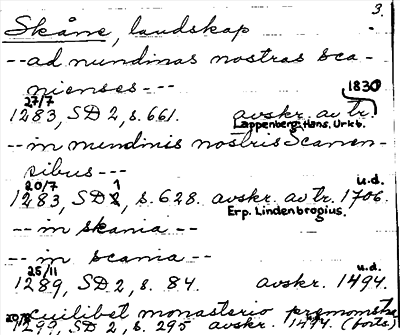 3.
Skåne, landskap
-- ad nundinas nostras Sca-
nienses ---
1830
27/7
1283, SD 2, s. 661. avskr. av tr.
Lappenberg, Hans. Urkb.
-- in nundinis nostris Scanien-
sibus ---
20/7 1 u.d.
1283, SD 2, s. 628. avskr. av tr. 1706.
Erp. Lindenbrogius.
-- in skania --
-- in scania --
25/11 u.d.
1289, SD 2, s. 84. avskr. 1494.
cuilibet monasterio premonstra
1299, SD 2, s. 295 avskr. 1494 (forts.)